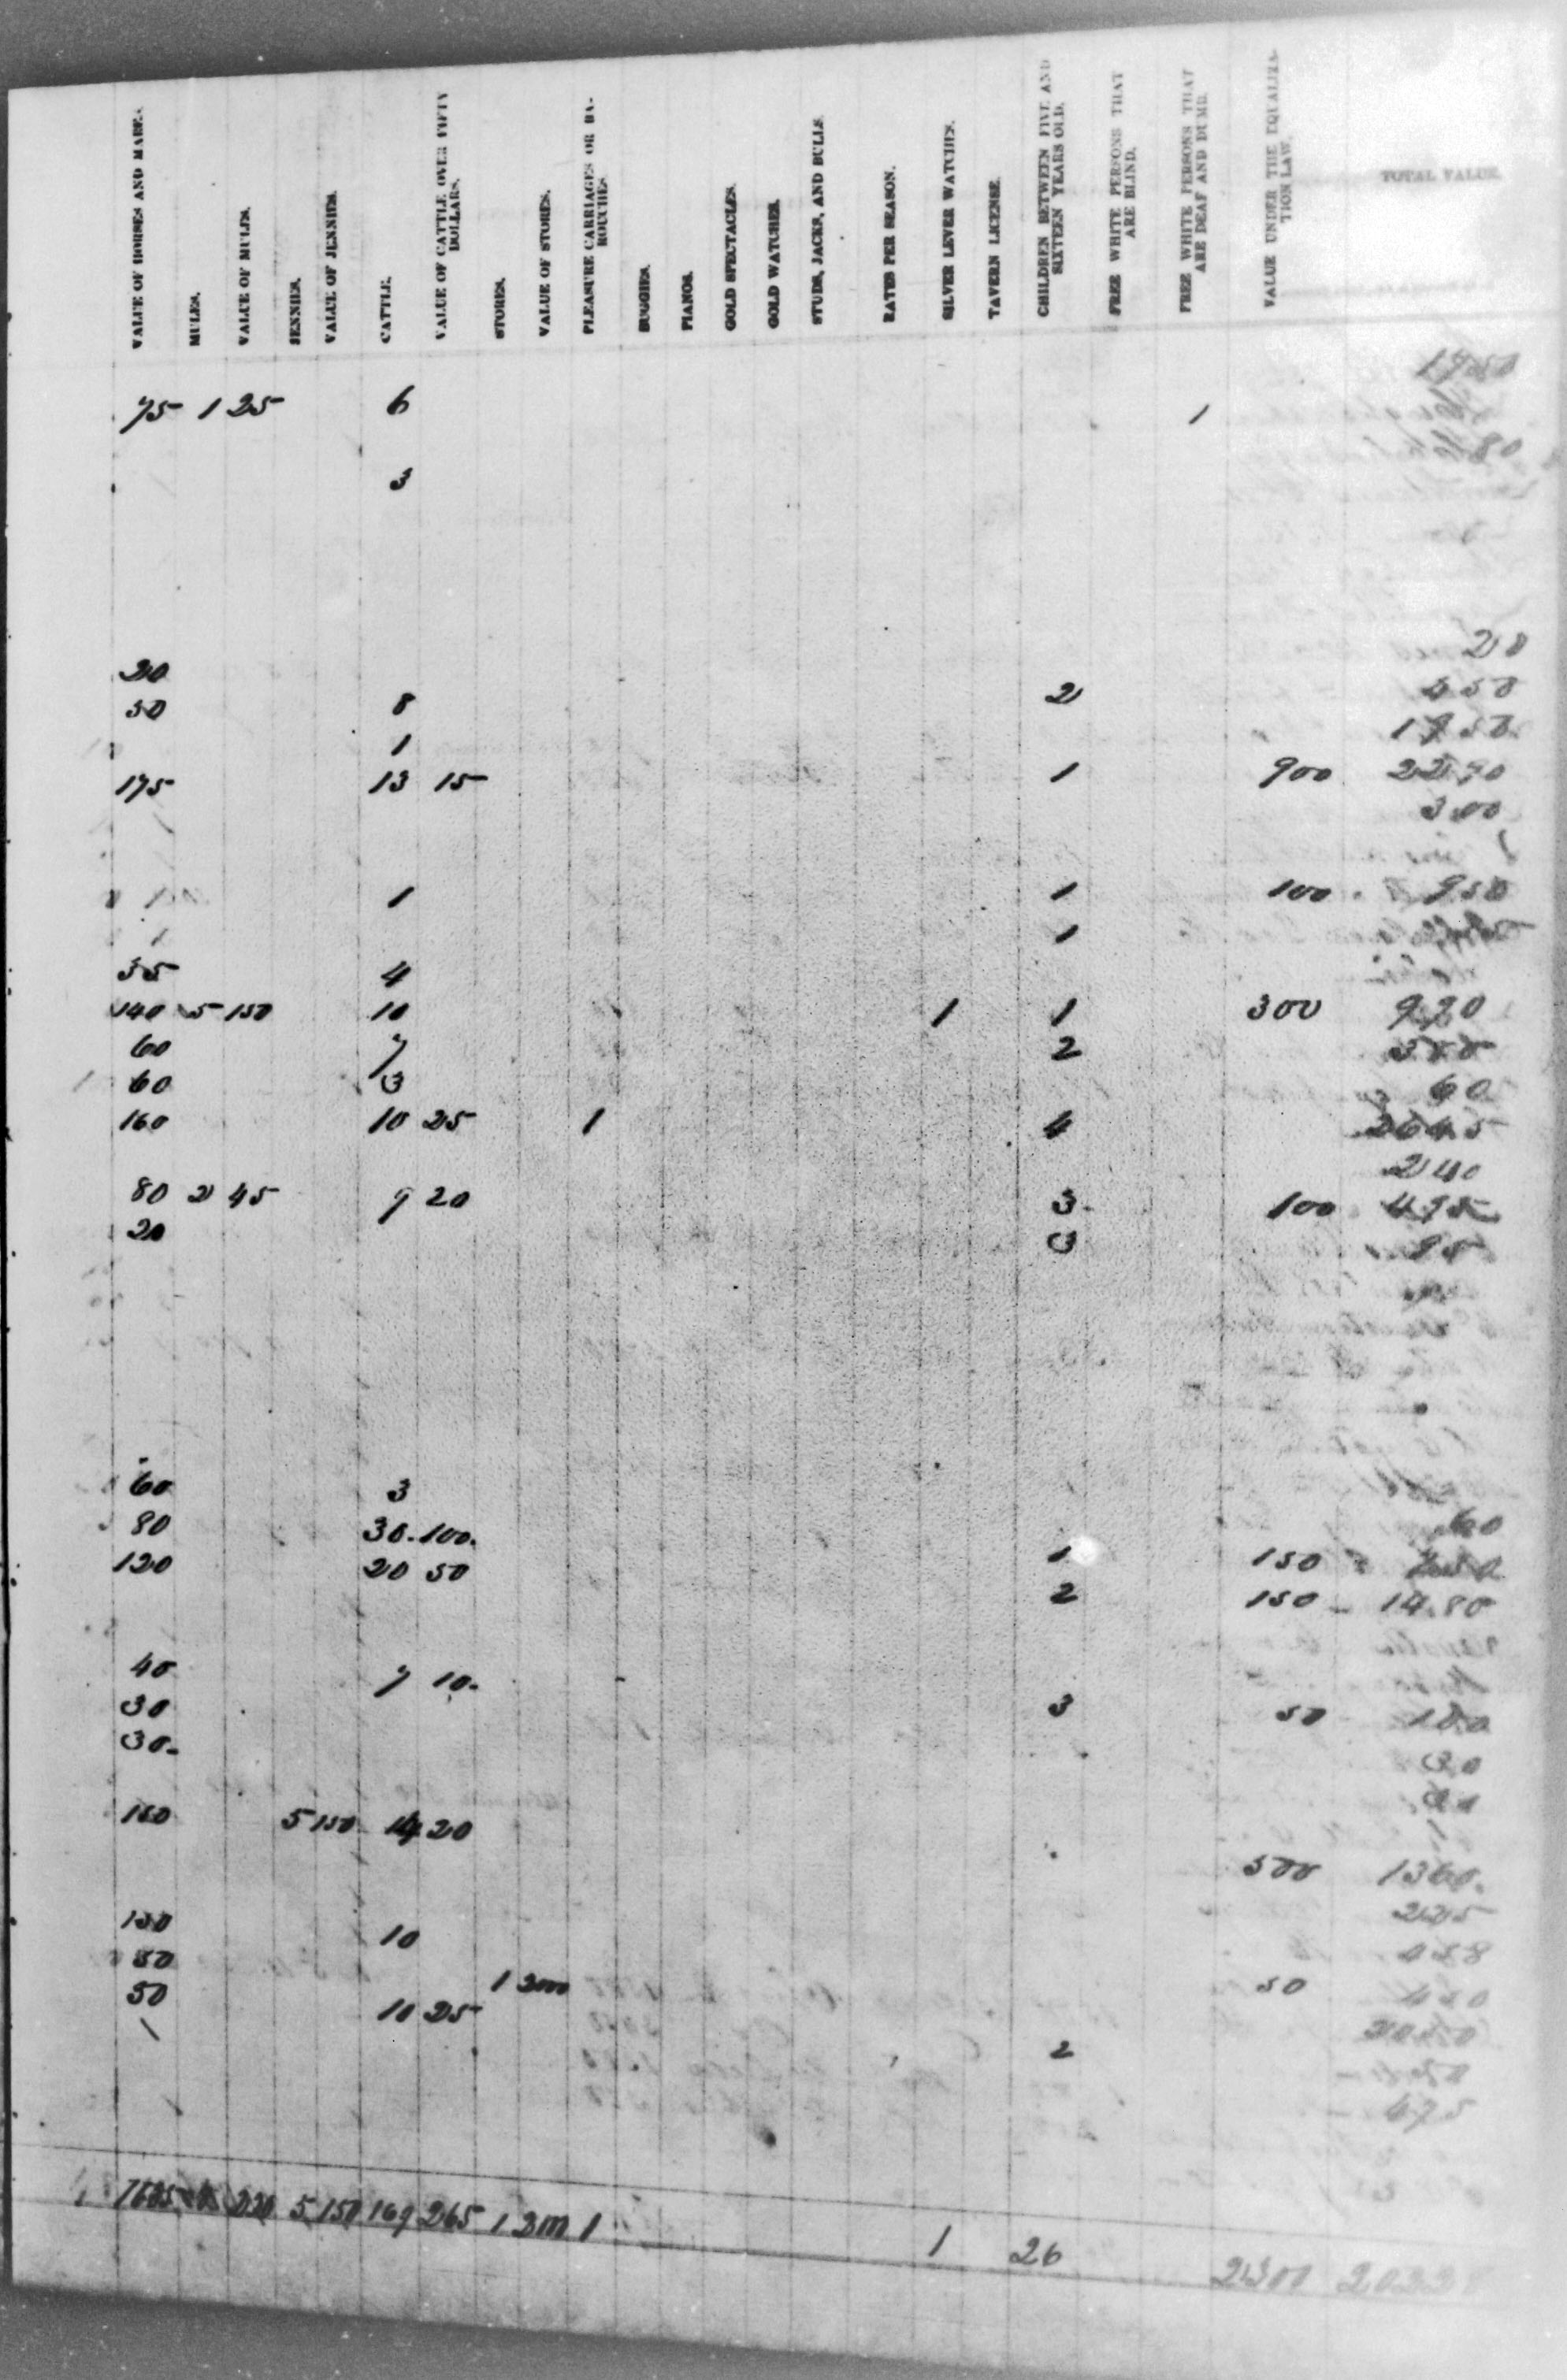 VALUE OF HORSES AND MARES.
MULES.
VALUE OF MULES.
JENNIES.
VALUE OF JENNIES.
CATTLE.
VALUE OF CATTLE OVER FIFTY DOLLARS.
STORES.
VALUE OF STORES.
PLEASURE CARRIAGES OR BAROUCHES.
BUGGIES.
PIANOS.
GOLD SPECTACLES.
GOLD WATCHES.
STUDS, JACKS, AND BULLS.
RATES PER SEASON.
SILVER LEVER WATCHES.
TAVERN LICENSE.
CHILDREN BETWEEN FIVE AND SIXTEEN YEARS OLD.
FREE WHITE PERSONS THAT ARE BLIND.
FREE WHITE PERSONS THAT ARE DEAF AND DUMB.
VALUE UNDER THE EQUALIZATION LAW.
TOTAL VALUE.
1750
75 1 25 6 1
80
3
20 20
50 8 2 450
1 1750
175 13 15 1 900 2290
300
1 1 100 950
1
35 4
140 5 150 10 1 1 300 990
60 7 2 500
60 3 60
160 10 25 1 4 2645
240
80 2 45 9 20 3 100 495
20 3 95
60 3
80 30 100 60
120 20 50 1 150
2 150 1480
40 7 10
30 3 50 180
30 30
160 5 150 14 20
500 1360
150 10 225
50 458
50 10 25 1 300 50
2
675
1685 220 5 150 169 265 1 300 1 1 26 2300